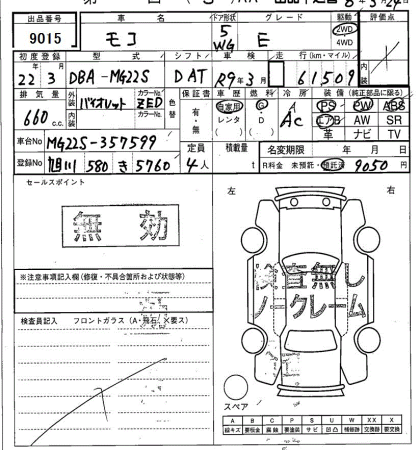 出品番号 車名 ドア形状 グレード 駆動 評価点
9015 モコ 5 WG E 2WD 4WD
初度登録 型式 シフト 車検 走行(km・マイル) 内装
22年3月 DBA-MG22S DAT R9年3月 61509
排気量 外装 カラーNo. 色替 保証書 車歴 燃料 冷房 装備(純正部品に限る)
660c.c. バイオレット ZED 有・無 自家用 レンタ G・D Ac PS PW ABS
内装 カラーNo. エアB AW SR
革 ナビ TV
車台No MG22S-357599 定員 積載量 名変期限 年 月 日
登録No 旭川 580 き 5760 4人 t R料金 未預託・預託済 9050円
セールスポイント 左 右
無効
※注意事項記入欄(修復・不具合箇所および状態等)
検査無し
ノークレーム
検査員記入 フロントガラス(A・飛石・×要ス)
スペア
A B C P S U W XX X
線キズ 要板金 腐蝕 要塗装 サビ 凹凸 補修跡 交換跡 要交換